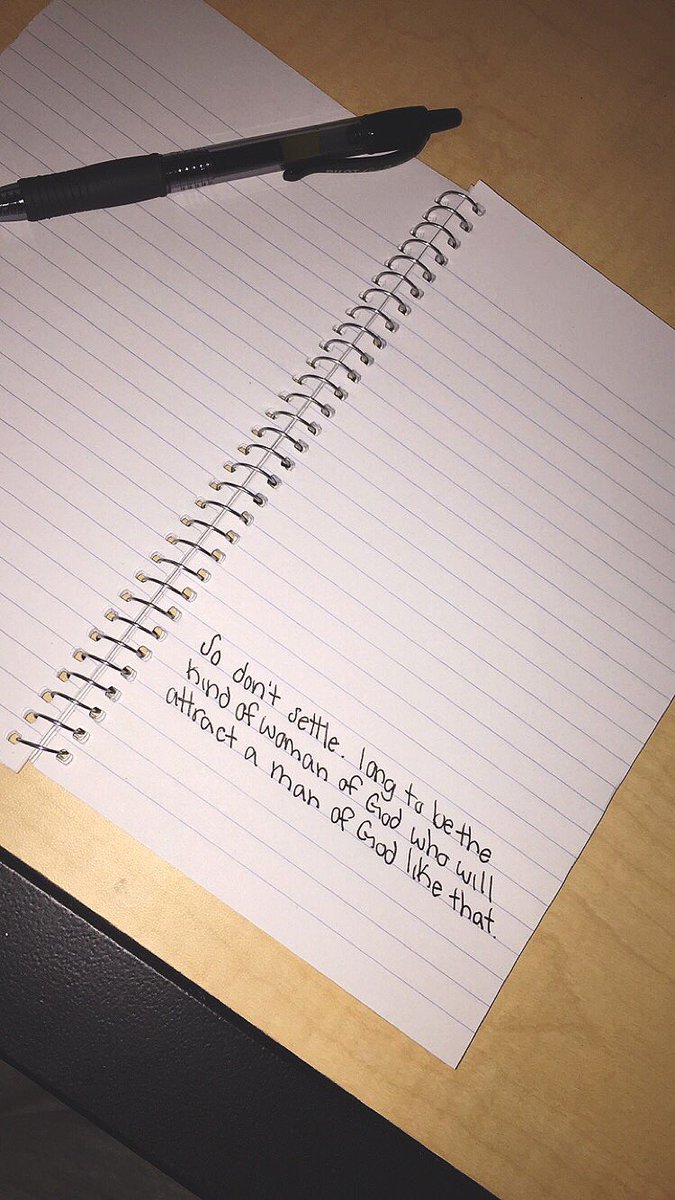 PILOT
So don't settle. long to be the
kind of woman of God who will
attract a man of God like that.